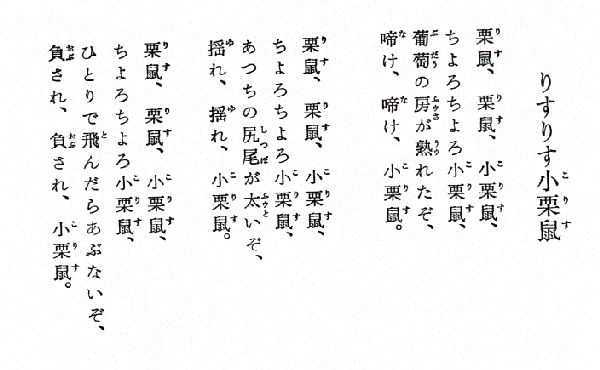 りすりす小栗鼠
栗鼠、栗鼠、小栗鼠、
ちよろちよろ小栗鼠、
葡萄の房が熟れたぞ、
啼け、啼け、小栗鼠。
栗鼠、栗鼠、小栗鼠、
ちよろちよろ小栗鼠、
あつちの尻尾が太いぞ、
揺れ、揺れ、小栗鼠。
栗鼠、栗鼠、小栗鼠、
ちよろちよろ小栗鼠、
ひとりで飛んだらあぶないぞ、
負され、負され、小栗鼠。